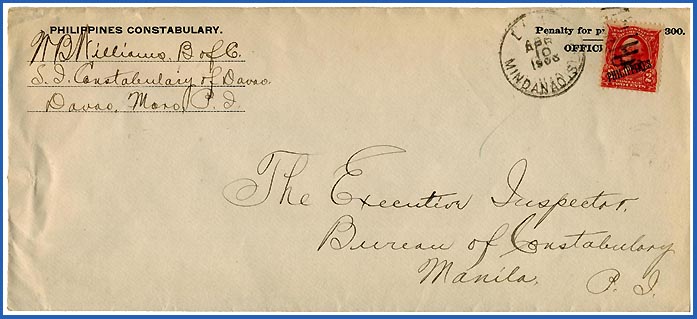 PHILIPPINES CONSTABULARY.
W B Williams, B of C.
S. I. Constabulary of Davao
Davao, Moro, P. I.
Penalty for 300.
OFFIC
APR
10
MINDANAO
PHILIPPINES
TWO CENTS
The Executive Inspector,
Bureau of Constabulary
Manila, P. I.